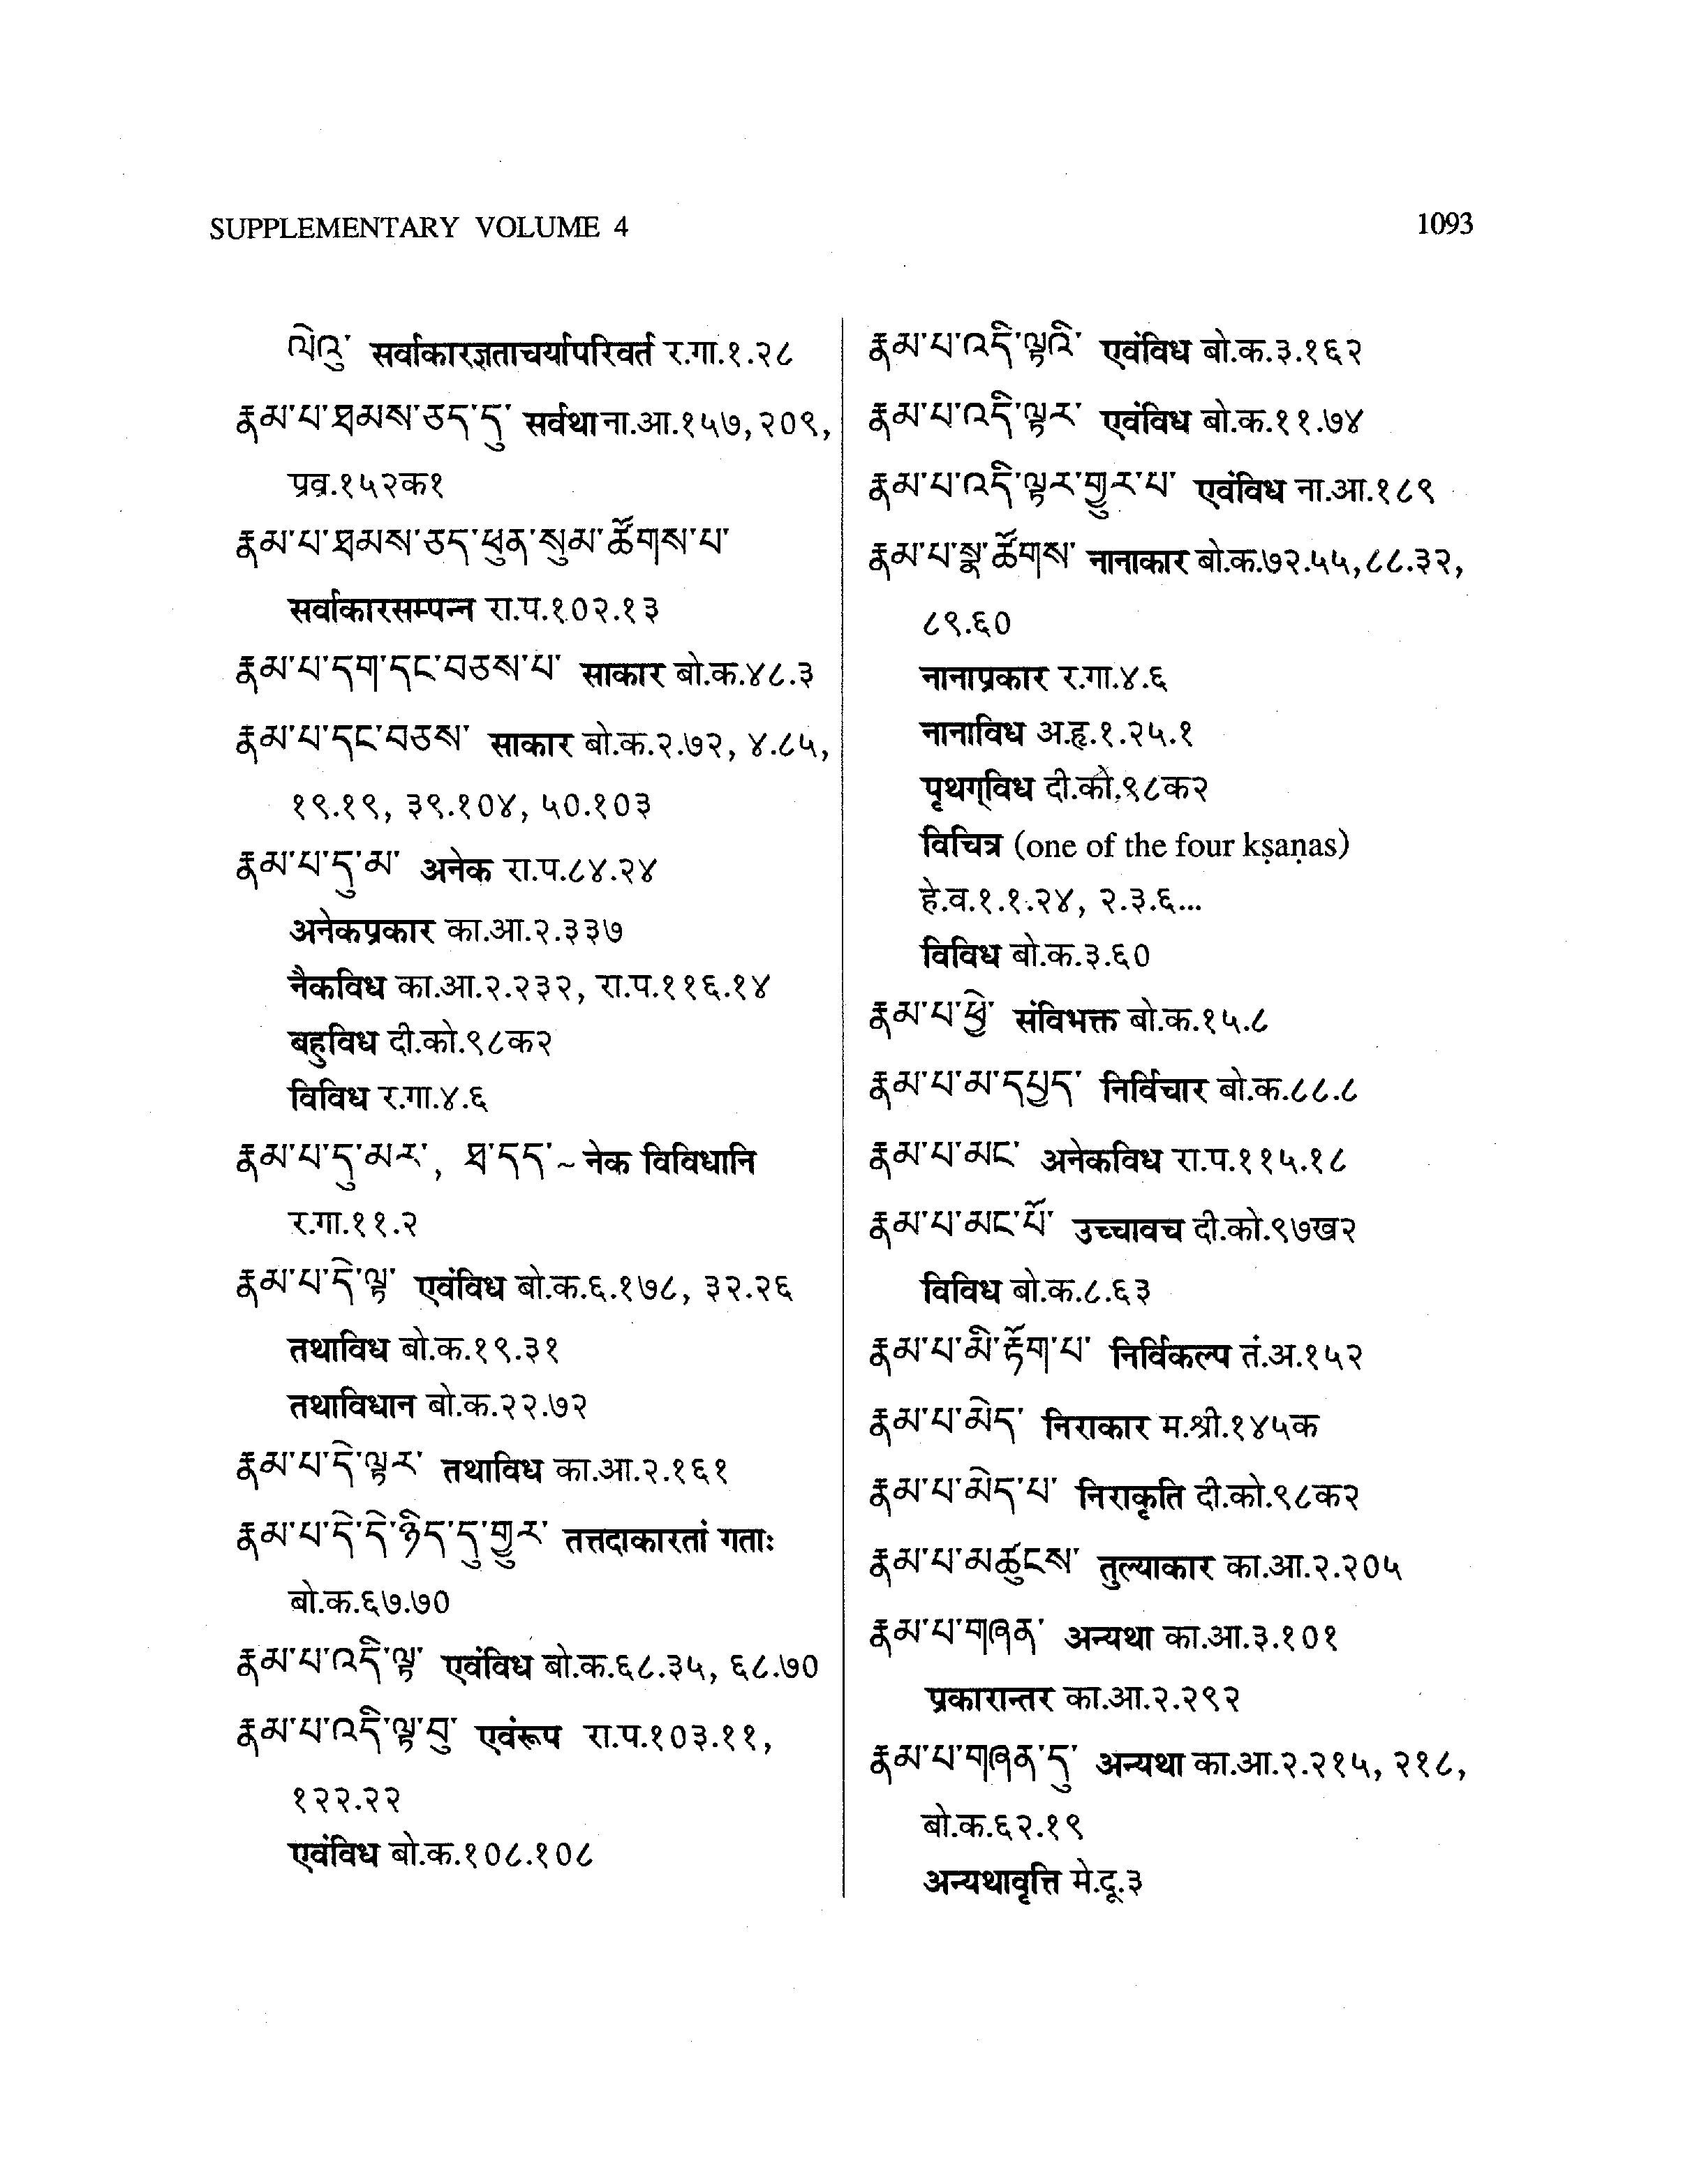 SUPPLEMENTARY VOLUME 4
1093
ལེའུ་ सर्वाकारज्ञताचर्यापरिवर्त र.गा.१.२८
རྣམ་པ་ཐམས་ཅད་དུ་ सर्वथा ना.आ.१५७, २०९,
प्रव्र.१५२क१
རྣམ་པ་ཐམས་ཅད་ཕུན་སུམ་ཚོགས་པ་
सर्वाकारसम्पन्न रा.प.१०२.१३
རྣམ་པ་དག་དང་བཅས་པ་ साकार बो.क.४८.३
རྣམ་པ་དང་བཅས་ साकार बो.क.२.७२, ४.८५,
१९.१९, ३९.१०४, ५०.१०३
རྣམ་པ་དུ་མ་ अनेक रा.प.८४.२४
अनेकप्रकार का.आ.२.३३७
नैकविध का.आ.२.२३२, रा.प.११६.१४
बहुविध दी.को.९८क२
विविध र.गा.४.६
རྣམ་པ་དུ་མར་, ཐ་དད་~ नेक विविधानि
र.गा.११.२
རྣམ་པ་དེ་ལྟ་ एवंविध बो.क.६.१७८, ३२.२६
तथाविध बो.क.१९.३१
तथाविधान बो.क.२२.७२
རྣམ་པ་དེ་ལྟར་ तथाविध का.आ.२.१६१
རྣམ་པ་དེ་དེ་ཉིད་དུ་གྱུར་ तत्तदाकारतां गताः
बो.क.६७.७०
རྣམ་པ་འདི་ལྟ་ एवंविध बो.क.६८.३५, ६८.७०
རྣམ་པ་འདི་ལྟ་བུ་ एवंरूप रा.प.१०३.११,
१२२.२२
एवंविध बो.क.१०८.१०८
རྣམ་པ་འདི་ལྟའི་ एवंविध बो.क.३.१६२
རྣམ་པ་འདི་ལྟར་ एवंविध बो.क.११.७४
རྣམ་པ་འདི་ལྟར་གྱུར་པ་ एवंविध ना.आ.१८९
རྣམ་པ་སྣ་ཚོགས་ नानाकार बो.क.७२.५५, ८८.३२,
८९.६०
नानाप्रकार र.गा.४.६
नानाविध अ.हृ.१.२५.१
पृथग्विध दी.को.९८क२
विचित्र (one of the four kṣaṇas)
हे.व.१.१.२४, २.३.६...
विविध बो.क.३.६०
རྣམ་པ་ཕྱེ་ संविभक्त बो.क.१५.८
རྣམ་པ་མ་དཔྱད་ निर्विचार बो.क.८८.८
རྣམ་པ་མང་ अनेकविध रा.प.११५.१८
རྣམ་པ་མང་པོ་ उच्चावच दी.को.९७ख२
विविध बो.क.८.६३
རྣམ་པ་མི་རྟོག་པ་ निर्विकल्प तं.अ.१५२
རྣམ་པ་མེད་ निराकार म.श्री.१४५क
རྣམ་པ་མེད་པ་ निराकृति दी.को.९८क२
རྣམ་པ་མཚུངས་ तुल्याकार का.आ.२.२०५
རྣམ་པ་གཞན་ अन्यथा का.आ.३.१०१
प्रकारान्तर का.आ.२.२९२
རྣམ་པ་གཞན་དུ་ अन्यथा का.आ.२.२१५, २१८,
बो.क.६२.१९
अन्यथावृत्ति मे.दू.३